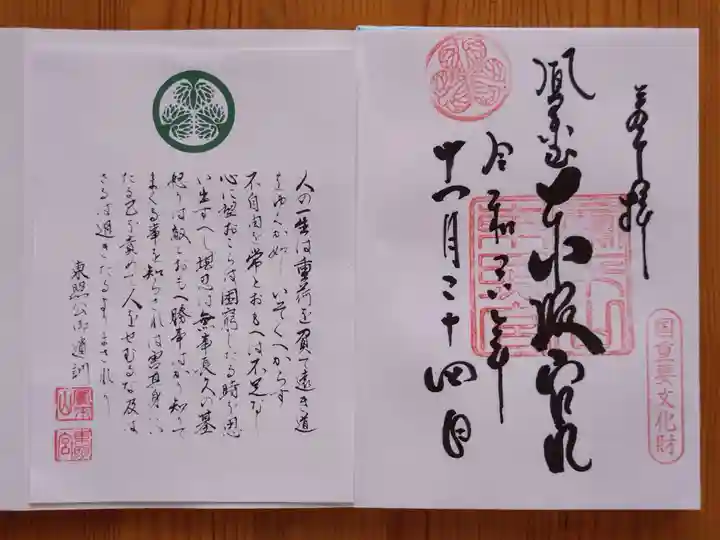 奉拝
鳳来山東照宮
令和六年
十一月二十四日
国重要文化財
人の一生は重荷を負て遠き道
をゆくが如し いそぐべからず
不自由を常とおもへば不足なし
心に望おこらば困窮したる時を思
い出すべし堪忍は無事長久の基
怒りは敵とおもへ勝事ばかり知りて
まくる事を知らざれば害其身に
たる己を責めて人をせむるな及ば
ざるは過ぎたるよりまされり
東照公御遺訓